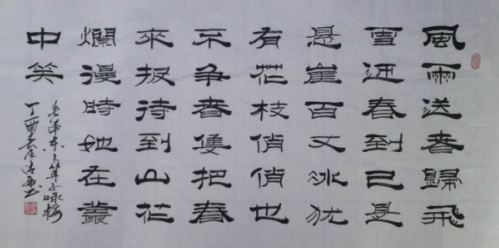 風雨送春歸飛
雪迎春到已是
悬崖百丈冰犹
有花枝俏俏也
不争春隻把春
來报待到山花
爛漫時她在叢
中笑
毛泽东卜算子咏梅
丁酉